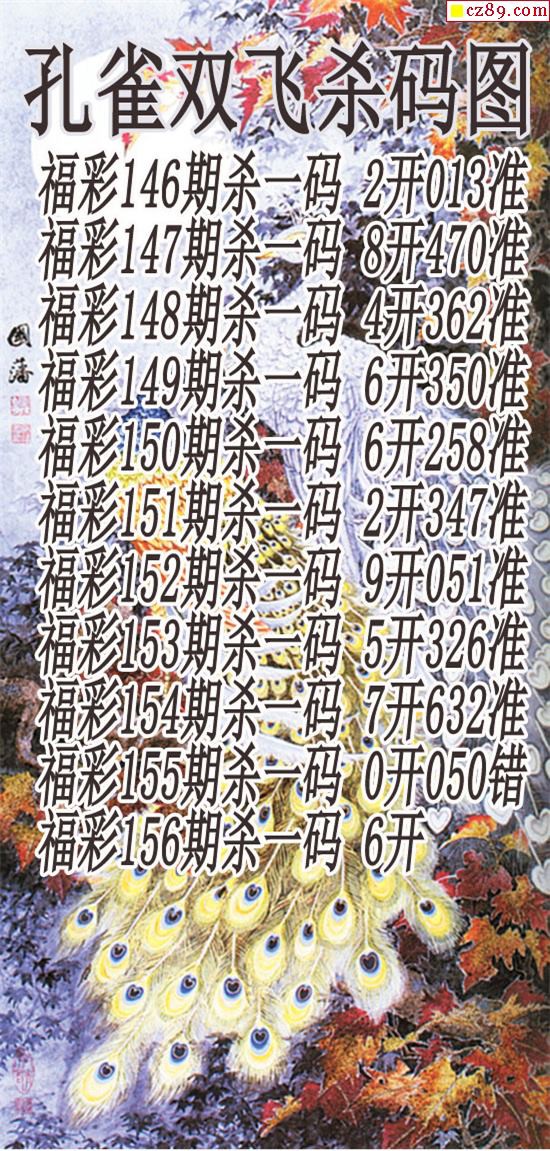 cz89.com
孔雀双飞杀码图
福彩146期杀一码 2开013准
福彩147期杀一码 8开470准
福彩148期杀一码 4开362准
福彩149期杀一码 6开350准
福彩150期杀一码 6开258准
福彩151期杀一码 2开347准
福彩152期杀一码 9开051准
福彩153期杀一码 5开326准
福彩154期杀一码 7开632准
福彩155期杀一码 0开050错
福彩156期杀一码 6开
國藩